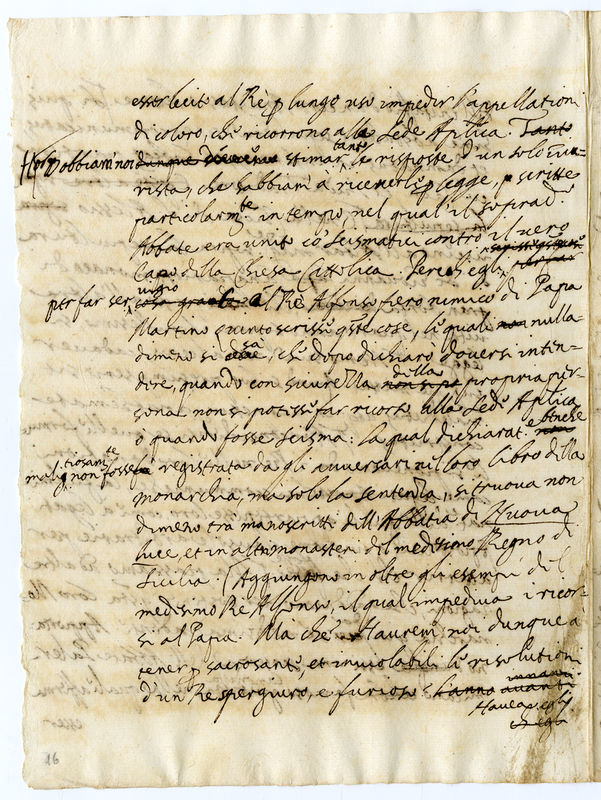 esser lecito al Rè p lungo uso impedir l'appellationi
di coloro, che ricorrono alla Sede Aplica. Tanto
Hor dobbiam noi dunque stimar tanto le risposte d'un solo Giu-
rista, che habbiam à ricenerle p legge, scritte
particolarmte in tempo, nel qual il soprad.
Abbate era unito co' Scismatici contro il vero
Capo della Chiesa Cattolica. Perche egli
per far servigio cosa grande al Rè Alfonso fiero nimico di Papa
Martino quinto scrisse qste cose, le quali non nulla-
dimeno si sa, che dopo dichiarò doversi inten-
dere, quando con sicurezza della propria per-
sona non si potesse far ricorso alla Sede Aplica
ò quando fosse scisma: la qual dichiarat. benche
malitiosamte non fosse registrata da gli avversari nel loro libro della
monarchia, ma solo la sentenza, si truova non
dimeno tra manoscritti dell'Abbatia di Nuova
luce, et in altri monasteri del medesimo Regno di
Sicilia. (Aggiungono in oltre gli essempi del
medesimo Rè Alfonso, il qual impediva i ricor-
si al Papa. Ma che? Hauremo noi dunque à
tener p sacrosante, et inviolabili le risolutioni
d'un Rè spergiuro, e furioso? l'anno avanti
Havea egli
16